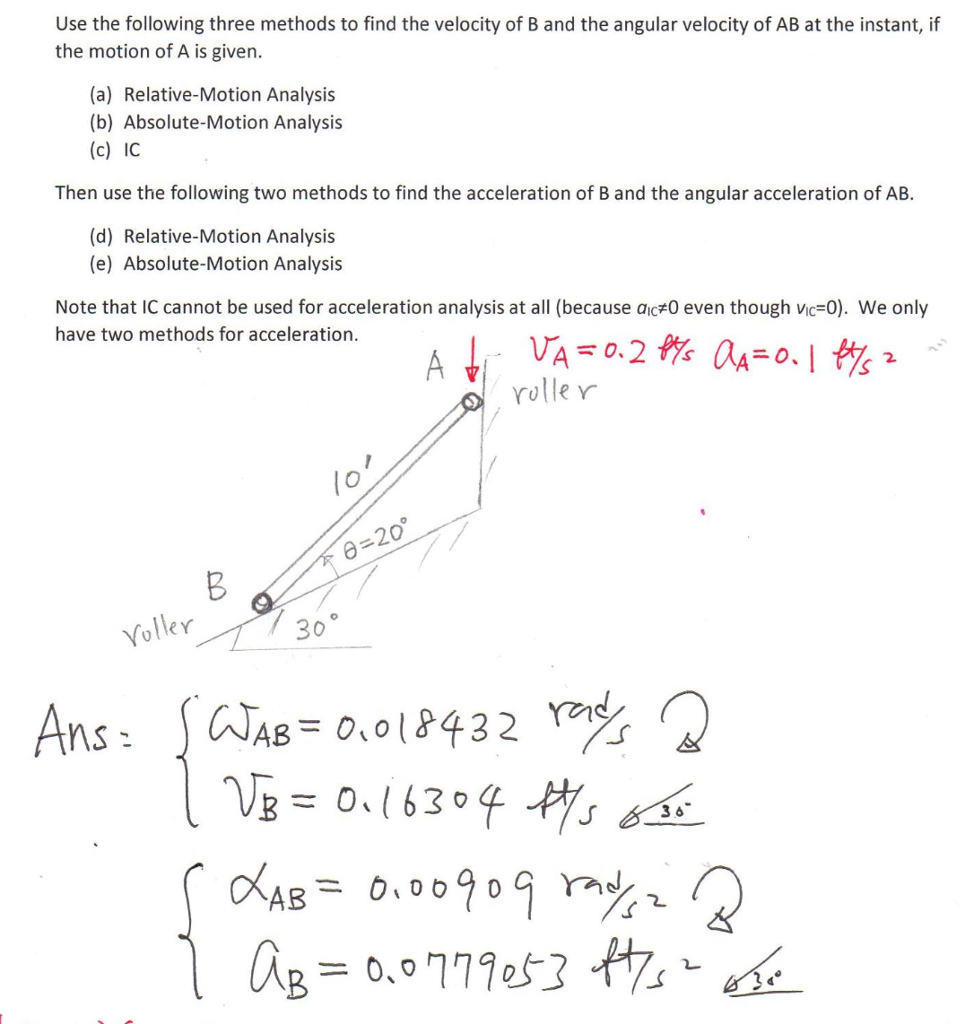 Use the following three methods to find the velocity of B and the angular velocity of AB at the instant, if
the motion of A is given.
(a) Relative-Motion Analysis
(b) Absolute-Motion Analysis
(c) IC
Then use the following two methods to find the acceleration of B and the angular acceleration of AB.
(d) Relative-Motion Analysis
(e) Absolute-Motion Analysis
Note that IC cannot be used for acceleration analysis at all (because aIC≠0 even though vIC=0). We only
have two methods for acceleration.
A VA = 0.2 ft/s aA = 0.1 ft/s²
roller
10'
θ=20°
B
roller 30°
Ans: ωAB = 0.018432 rad/s
VB = 0.16304 ft/s 30°
αAB = 0.00909 rad/s²
aB = 0.0779053 ft/s² 30°